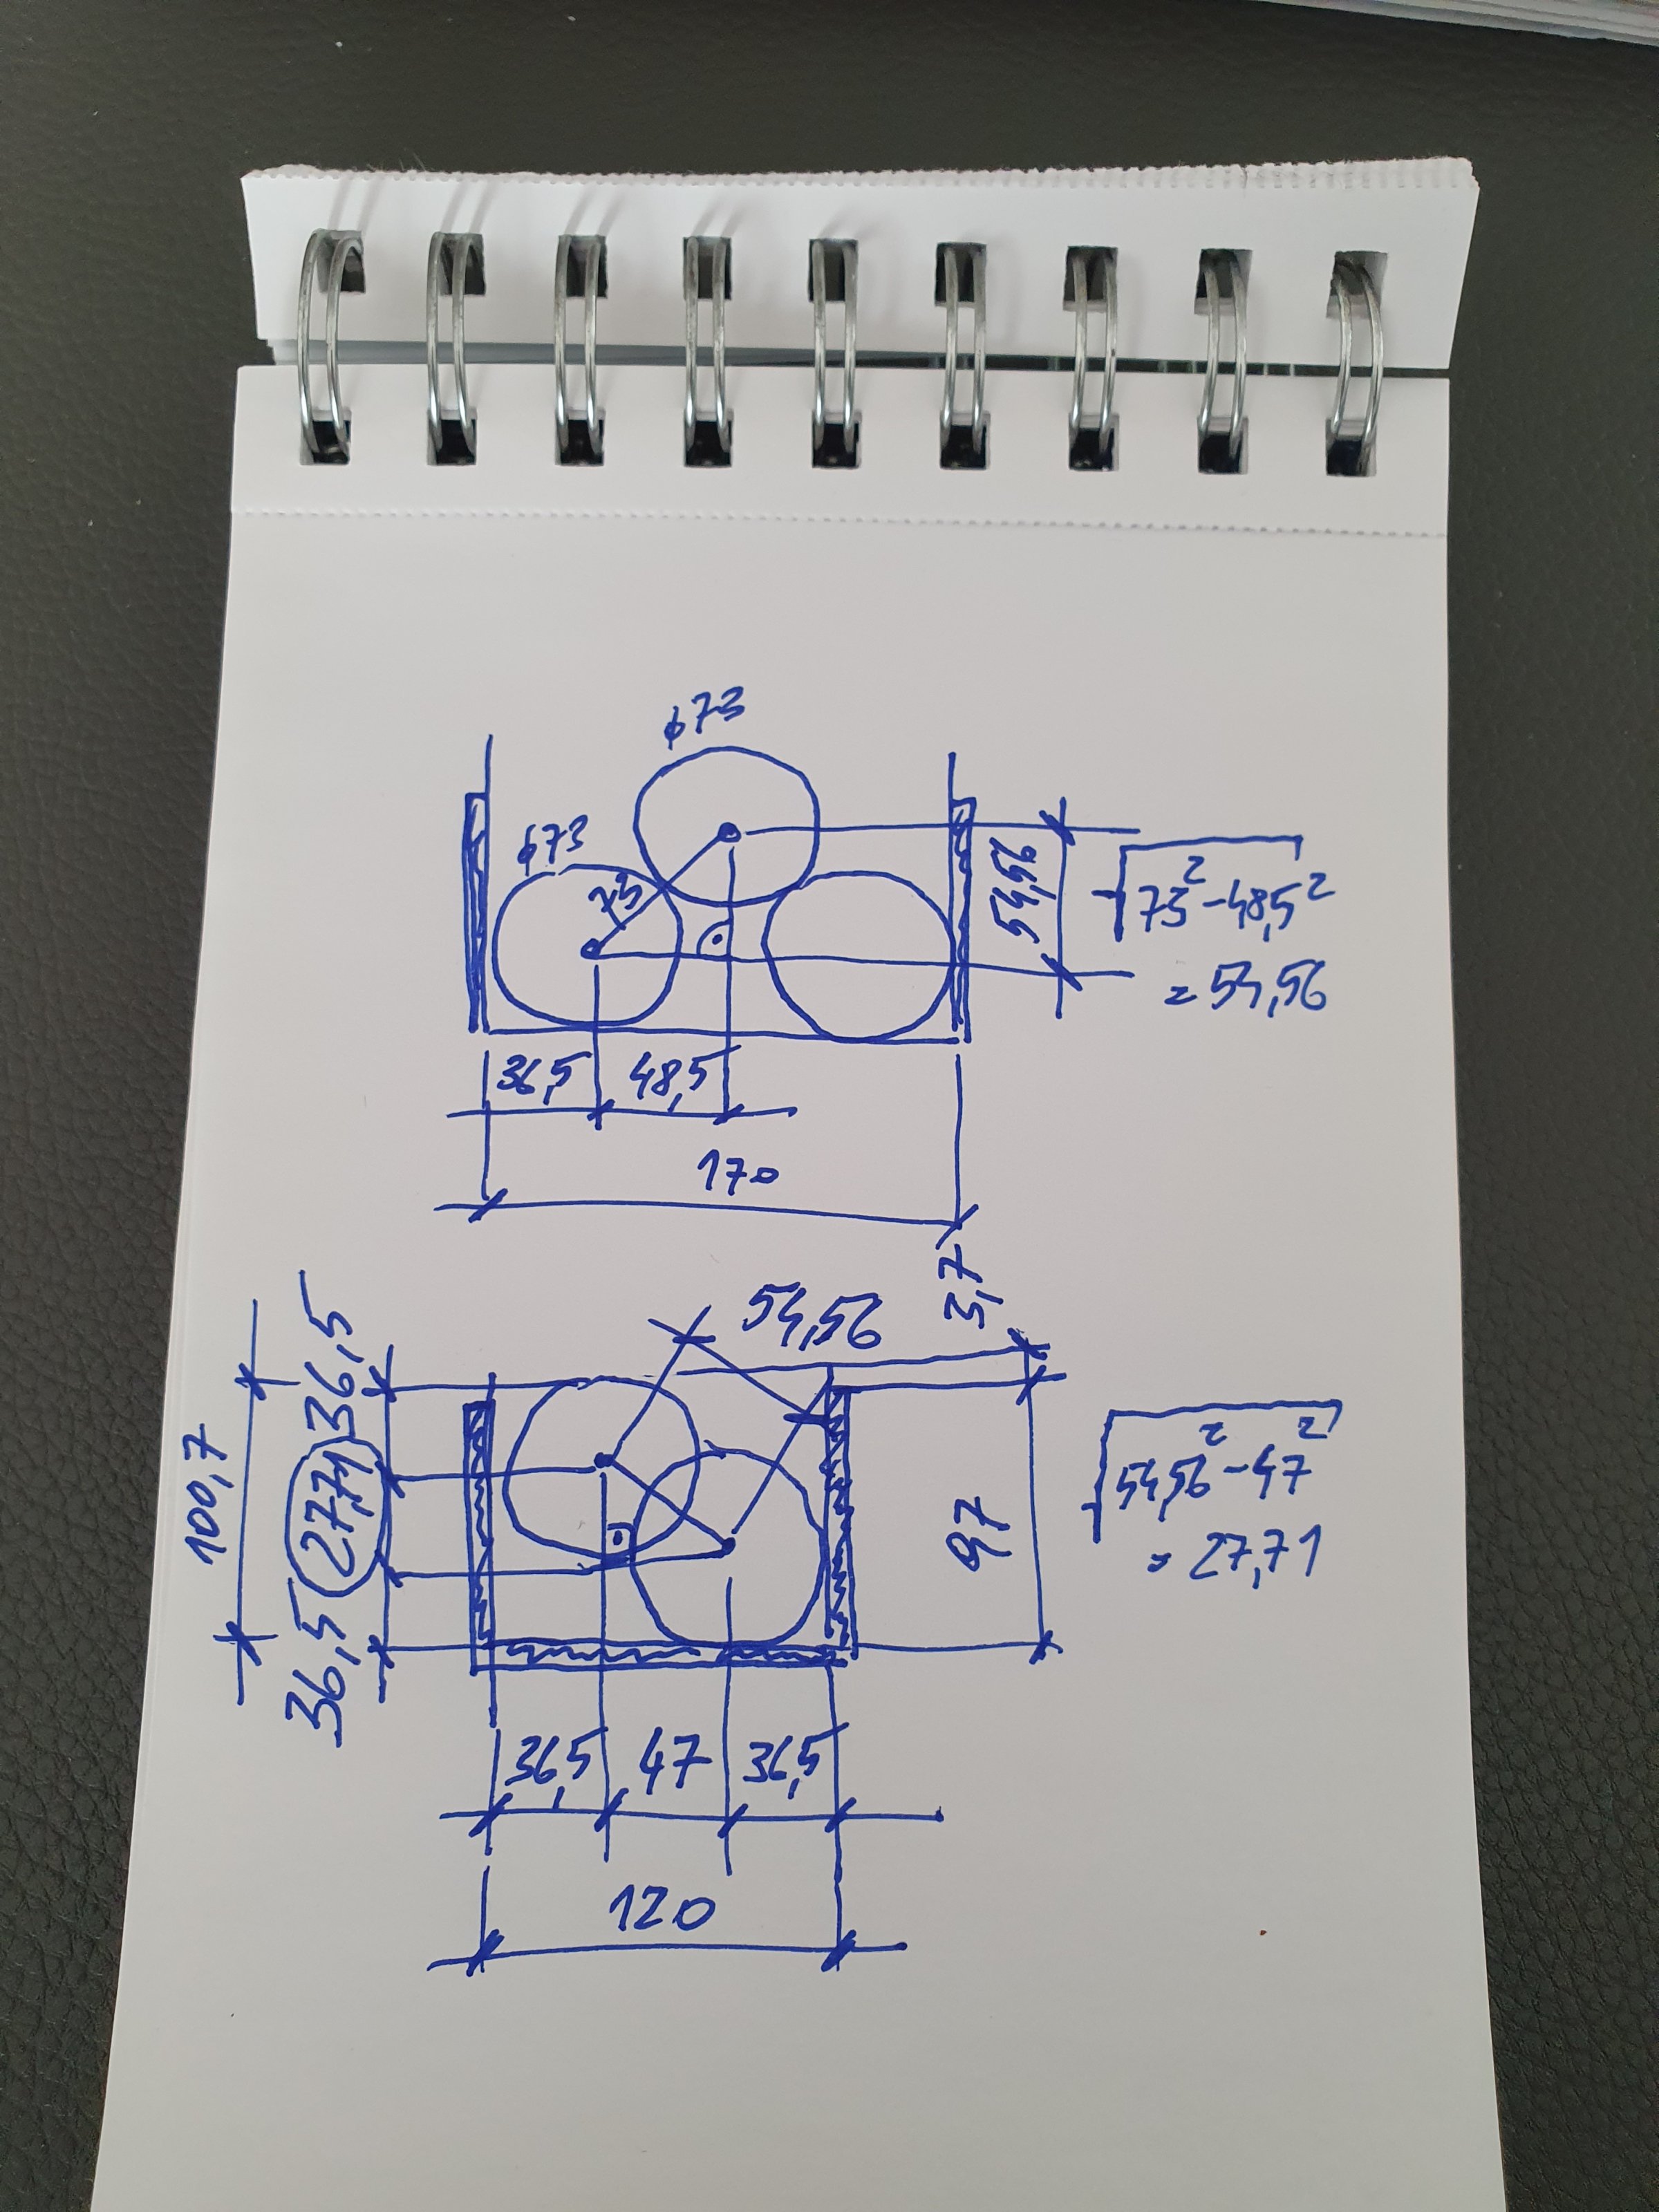 φ73
φ73
73
54,56
√73²-48,5²
= 54,56
36,5
48,5
170
3,7
54,56
36,5
27,71
36,5
100,7
97
√54,56²-47²
= 27,71
36,5
47
36,5
120